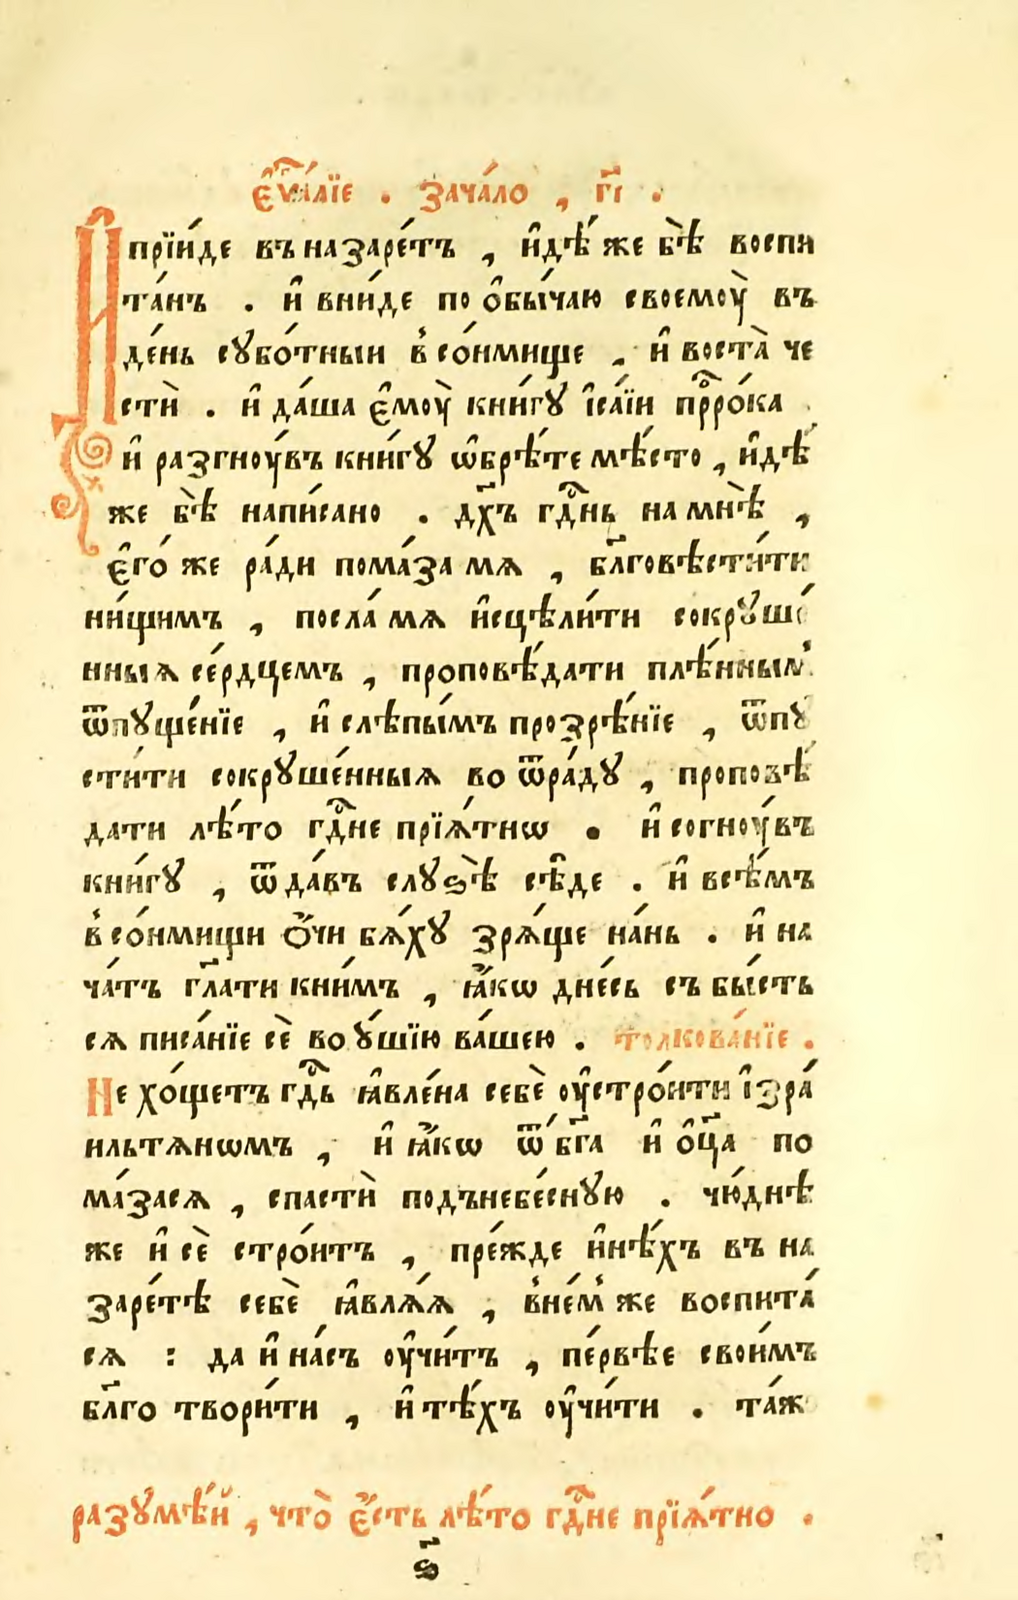 є҆ѵⷢ҇а́лїе . зача́ло , г҃і .
И прїи́де въ назаре́тъ , и҆дѣ́ же бѣ̀ воспи
та́нъ . и҆ вни́де по ѻ҆бы́чаю своемоу̀ въ
де́нь суббо́тныи в̾ со́нмище , и҆ воста̀ че
стѝ . и҆ да́ша є҆моу̀ кни́гу і҆са́їи прⷪ҇ро́ка .
и҆ разгноу́въ кни́гу ѡ҆брѣ́те мѣ́сто , и҆дѣ́
же бѣ̀ напи́сано . дх҃ъ гдⷭ҇нь на мнѣ̀ ,
є҆го́ же ра́ди пома́за мѧ , бл҃говѣсти́ти
ни́щимъ , посла́ мѧ и҆сцѣли́ти сокруше́
нныѧ се́рдцемъ , проповѣ́дати плѣ́нным̾
ѿпуще́нїе , и҆ слѣпы́мъ прозрѣ́нїе , ѿпу
сти́ти сокруше́нныѧ во ѿра́ду , проповѣ́
дати лѣ́то гдⷭ҇не прїѧ́тнѡ . и҆ согноу́въ
кни́гу , ѿда́въ слузѣ̀ сѣ́де . и҆ всѣ́мъ
в̾ со́нмищи ѻ҆́чи бѧ́ху зрѧ́ще на́нь . и҆ на
ча́тъ гл҃ати кни́мъ , ꙗ҆́кѡ дне́сь съ бы́сть
сѧ писа́нїе сѐ во у҆́шїю ва́шею . толкова́нїе .
Не хо́щетъ гдⷭ҇ь ꙗ҆вле́на себѐ оу҆стро́ити і҆зра́
ильтѧнѡмъ , и҆ ꙗ҆́кѡ ѿ бг҃а и҆ ѻ҆ц҃а по
ма́засѧ , спастѝ подънебе́сную . чю́днѣ
же и҆ сѐ стро́итъ , пре́жде и҆нѣ́хъ въ на
заре́тѣ себѐ ꙗ҆влѧ́ѧ , в̾не́м̾ же воспита́
сѧ : да и҆ на́съ оу҆чи́тъ , пе́рвѣе свои́мъ
бл҃го твори́ти , и҆ тѣ́хъ оу҆чи́ти . та́ж
разумѣ́й , что̀ є҆́сть лѣ́то гдⷭ҇не прїѧ́тно .
ѕ҃